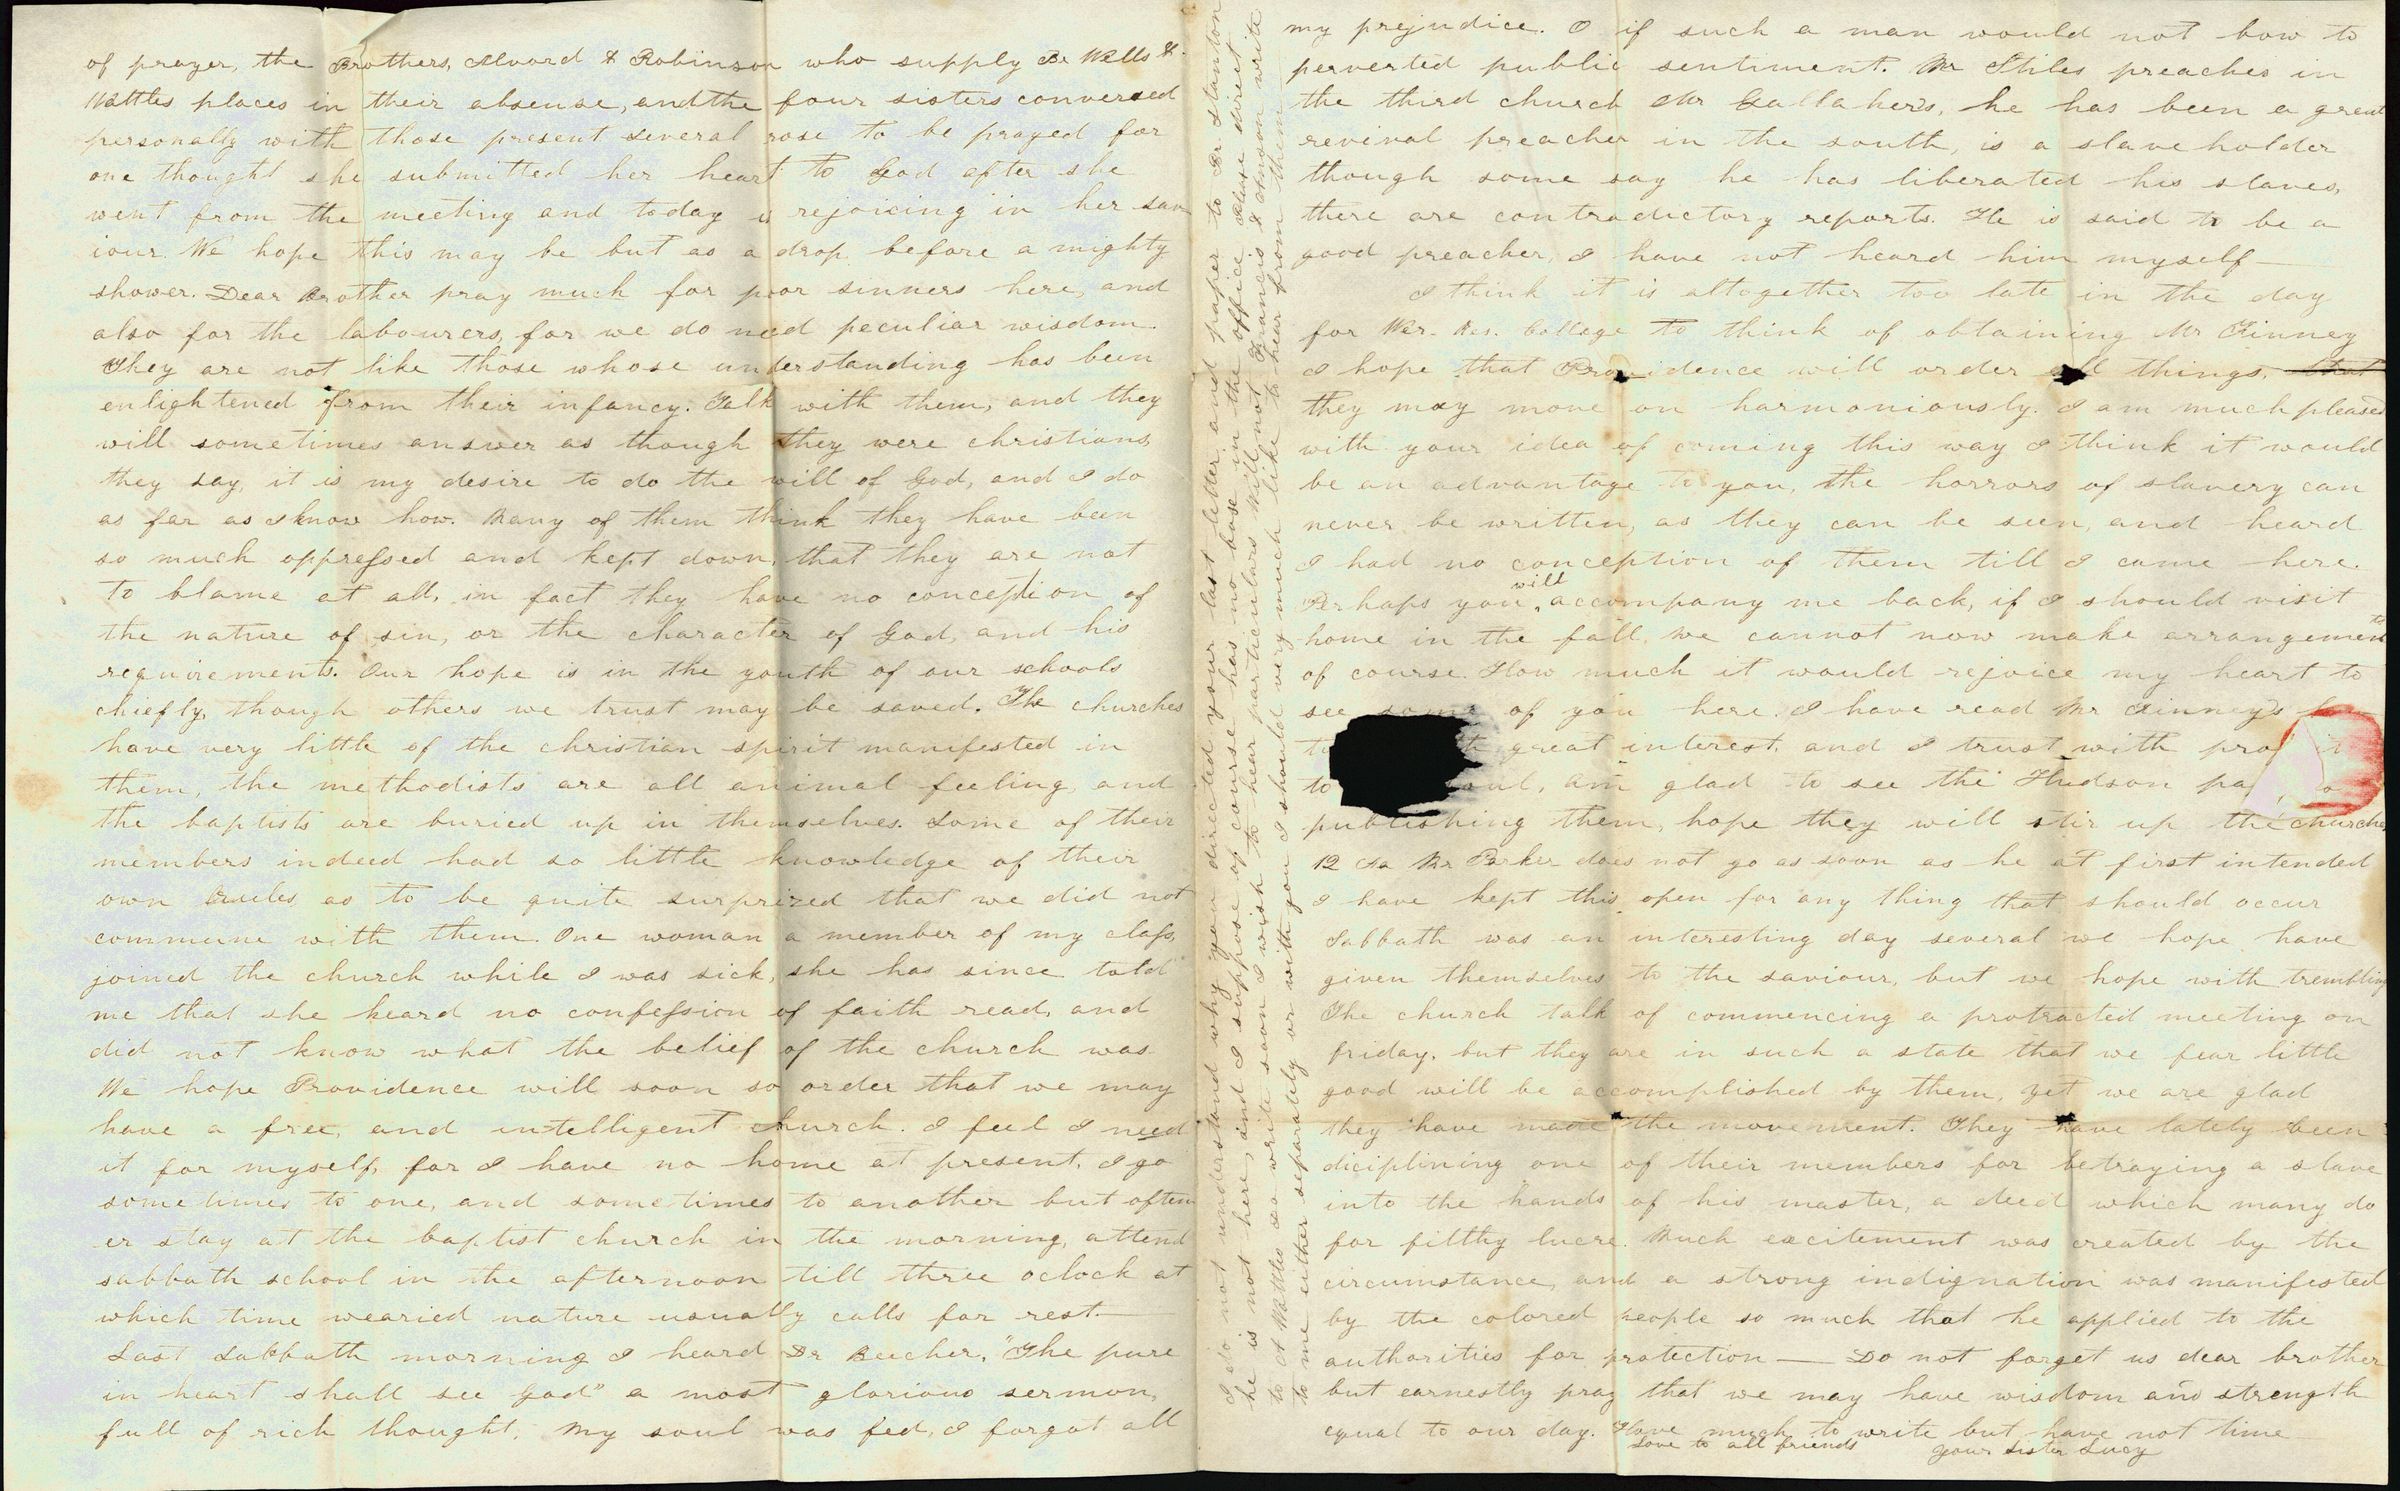 of prayer, the Brothers, Alvord & Robinson who supply Br Wells &
Wattles places in their absense, and the four sisters conversed
personally with those present several rose to be prayed for
one thought she submitted her heart to God after she
went from the meeting and today is rejoicing in her sav
iour. We hope this may be but as a drop before a mighty
shower. Dear Brother pray much for poor sinners here, and
also for the labourers, for we do need peculiar wisdom.
They are not like those whose understanding has been
enlightened from their infancy. Talk with them, and they
will sometimes answer as though they were christians
they say, it is my desire to do the will of God, and I do
as far as I know how. Many of them think they have been
so much oppressed and kept down, that they are not
to blame at all, in fact they have no conception of
the nature of sin, or the character of God, and his
requirements. Our hope is in the youth of our schools
chiefly, though others we trust may be saved. The churches
have very little of the christian spirit manifested in
them, the methodists are all animal feeling, and
the baptists are buried up in themselves. Some of their
members indeed had so little knowledge of their
own rules as to be quite surprized that we did not
commune with them. One woman a member of my class,
joined the church while I was sick, she has since told
me that she heard no confession of faith read, and
did not know what the belief of the church was.
We hope Providence will soon so order that we may
have a free, and intelligent church. I feel I need
it for myself, for I have no home at present, I go
sometimes to one, and sometimes to another but often
er stay at the baptist church in the morning, attend
sabbath school in the afternoon till three oclock at
which time wearied nature usually calls for rest.—
Last Sabbath morning I heard Dr Beecher, "The pure
in heart shall see God" a most glorious sermon,
full of rich thought, My soul was fed, I forgot all
I do not understand why you directed your last letter and paper to Br. Stanton
he is not here, and I suppose of course has no base in the office Please direct
to A Wattles Do write soon I wish to hear particulars Will not Francis & Anson write
to me either separately or with you I should very much like to hear from them
my prejudice. O if such a man would not bow to
perverted public sentiment. Mr Stiles preaches in
the third church Mr Gallahers, he has been a great
revival preacher in the south, is a slave holder
though some say he has liberated his slaves,
there are contradictory reports. He is said to be a
good preacher, I have not heard him myself—
I think it is altogether too late in the day
for Wes. Res. College to think of obtaining Mr Finney
I hope that Providence will order all things, that
they may move on harmoniously. I am much pleased
with your idea of coming this way I think it would
be an advantage to you, the horrors of slavery can
never be written, as they can be seen, and heard
I had no conception of them till I came here.
Perhaps you will accompany me back, if I should visit
home in the fall, we cannot now make arrangements
of course. How much it would rejoice my heart to
see some of you here. I have read Mr Finney's
great interest, and I trust with profit
to soul, am glad to see the Hudson
publishing them, hope they will stir up the churches
12 As Mr Parker does not go as soon as he at first intended
I have kept this open for any thing that should occur
Sabbath was an interesting day several we hope have
given themselves to the saviour, but we hope with trembling
The church talk of commencing a protracted meeting on
friday, but they are in such a state that we fear little
good will be accomplished by them, yet we are glad
they have made the movement. They have lately been
diciplining one of their members for betraying a slave
into the hands of his master, a deed which many do
for filthy lucre. Much excitement was created by the
circumstance, and a strong indignation was manifested
by the colored people so much that he applied to the
authorities for protection— Do not forget us dear brother
but earnestly pray that we may have wisdom and strength
equal to our day. Have much to write but have not time
Love to all friends your sister Lucy